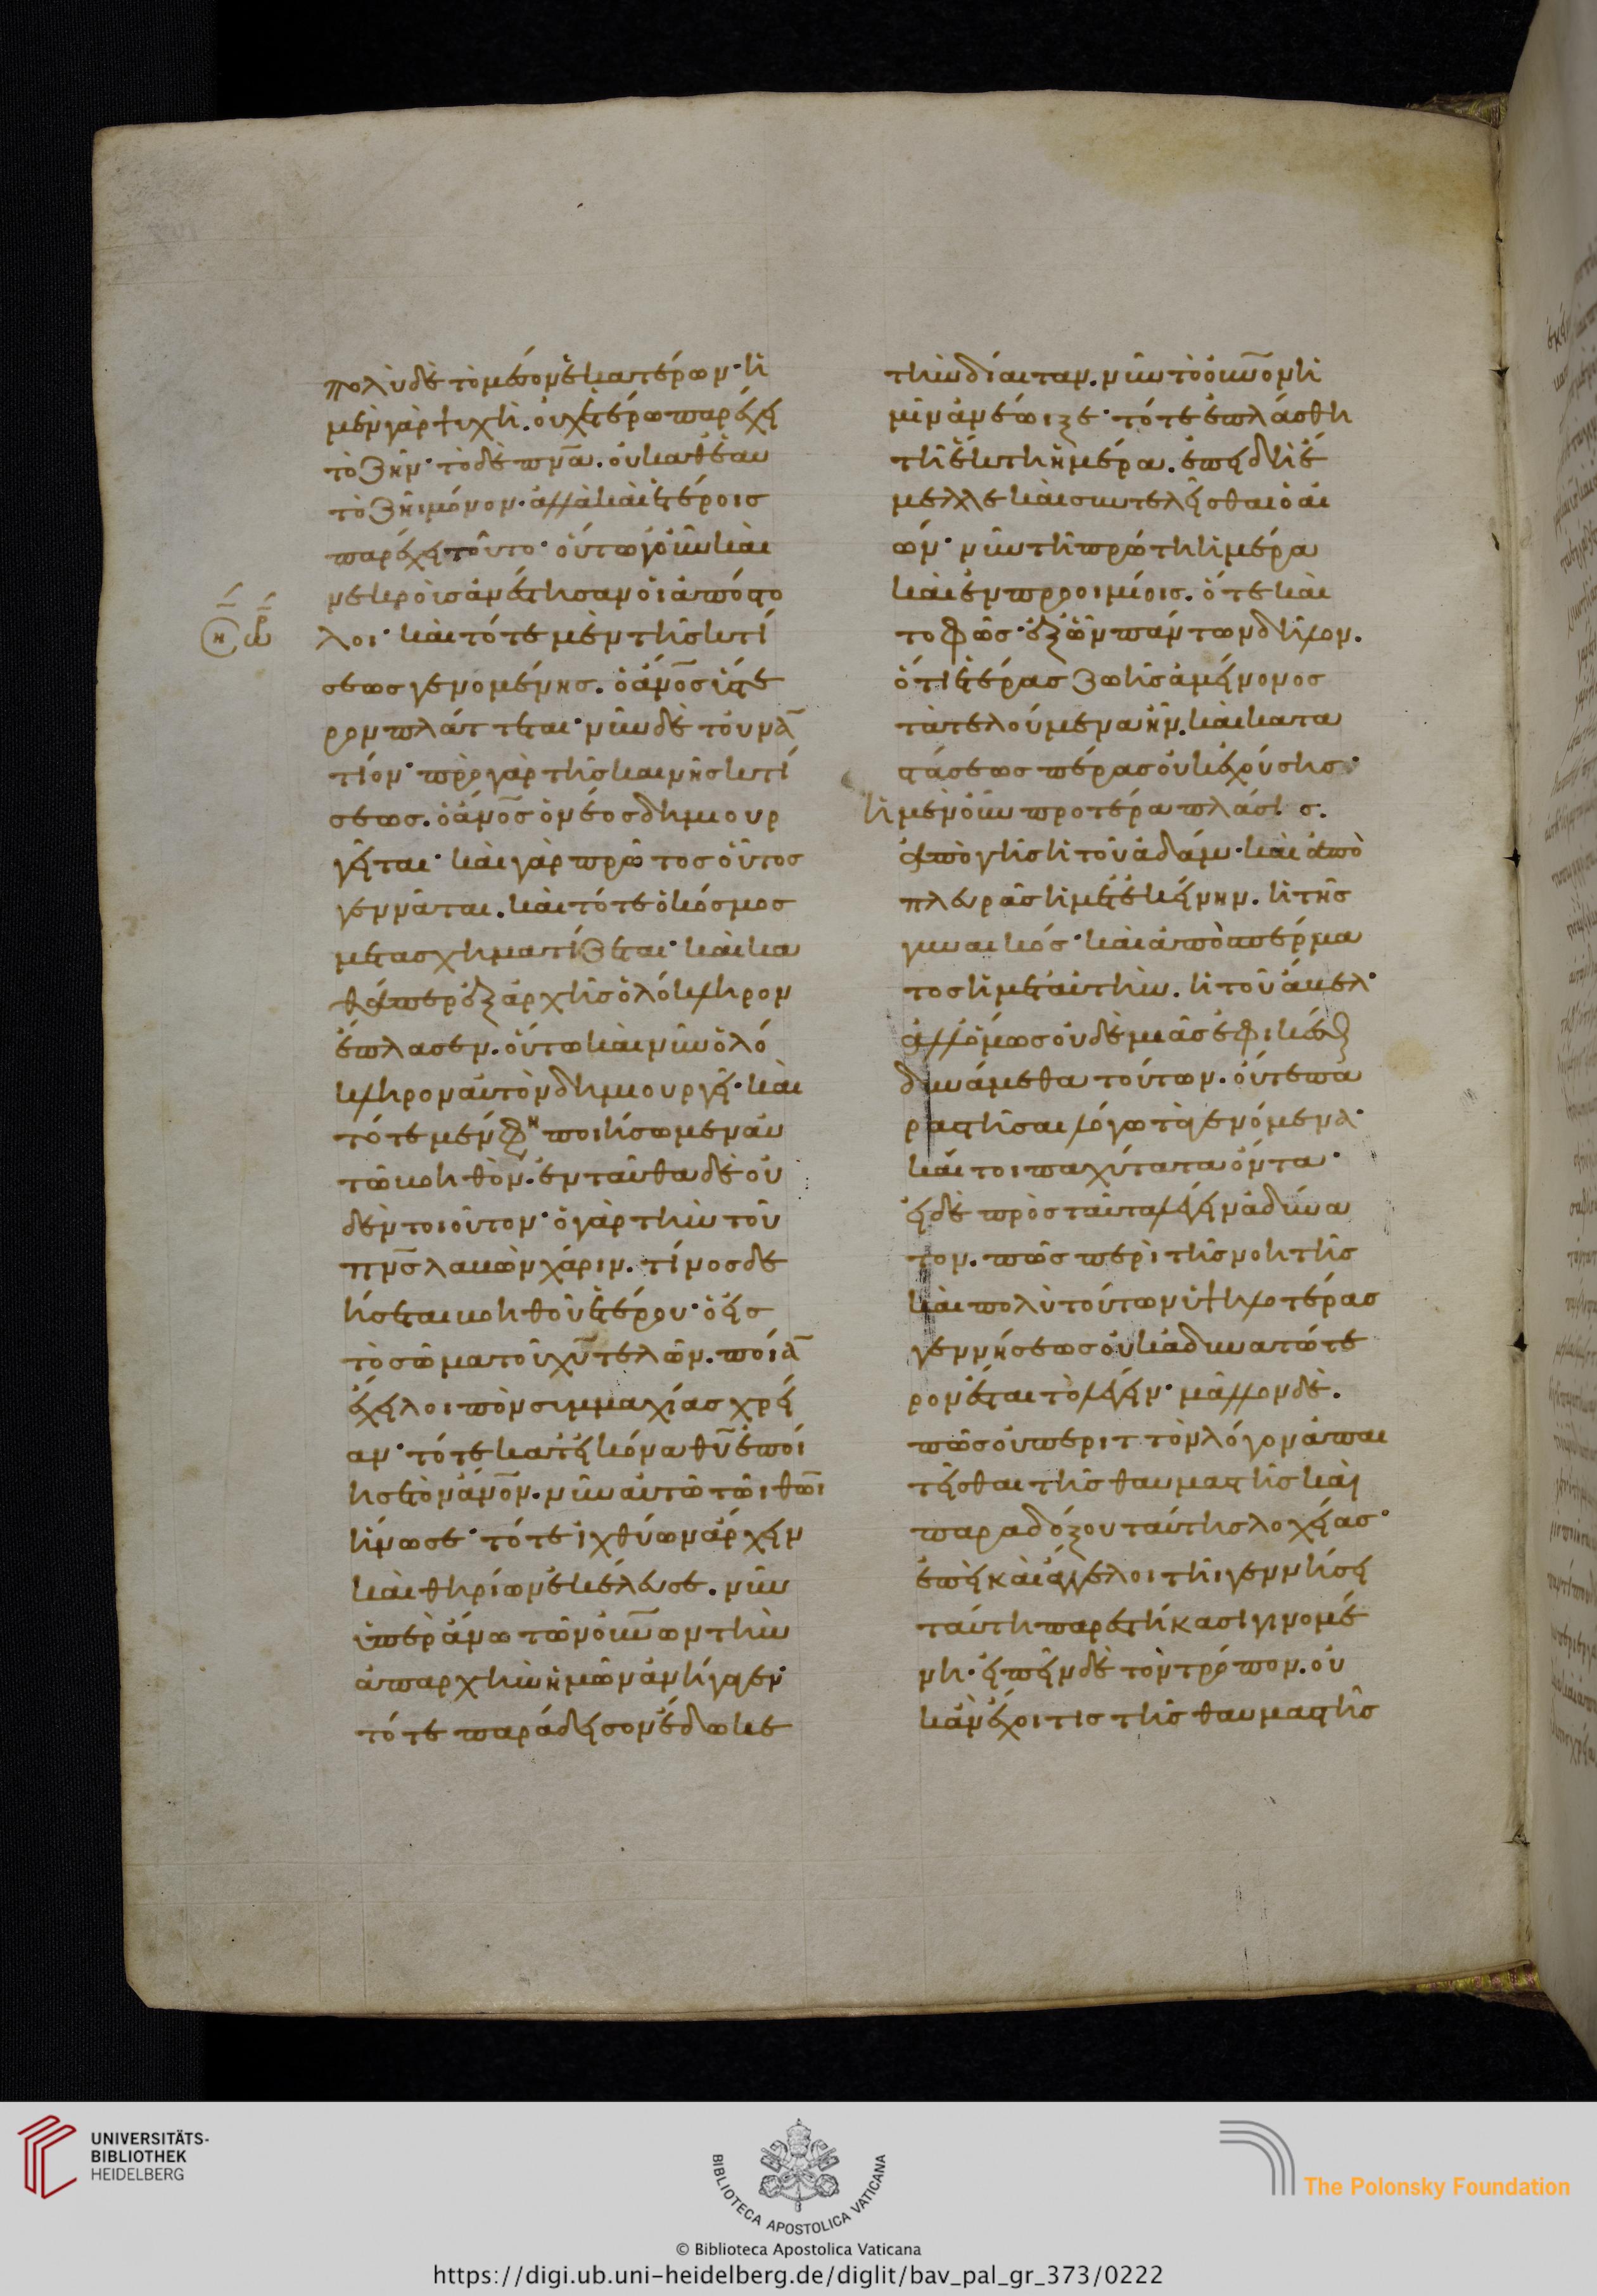 πολὺ δὲ τὸ μέσον ἑκατέρων· ἡ
μὲν γὰρ ψυχὴ. οὐχ ἑτέρω παρέχει
τὸ ζῆν· τὸ δὲ πνᾶ. οὐ καθ' ἑαυ
τὸ ζῆ μόνον· ἀλλὰ καὶ ἑτέροις
παρέχει τοῦτο· οὕτω γοῦν καὶ
νεκροὺς ἀνέστησαν οἱ ἀπόστο
λοι· καὶ τότε μὲν τῆς κτί
σεως γενομένης. ὁ ἄνος ὕστε
ρον πλάττεται· νῦν δὲ τοὐνα
τίον· πρὸ γὰρ τῆς καινῆς κτί
σεως. ὁ ἄνος ὁ νέος δημιουρ
γεῖται· καὶ γὰρ πρῶτος οὗτος
γεννᾶται. καὶ τότε ὁ κόσμος
μετασχηματίζεται· καὶ κα
θάπερ ἐξ ἀρχῆς ὁλόκληρον
ἔπλασεν. οὕτω καὶ νῦν ὁλό
κληρον αὐτὸν δημιουργεῖ· καὶ
τότε μέν φη ποιήσωμεν αὐ
τῶ βοηθόν. ἐνταῦθα δὲ οὐ
δὲν τοιοῦτον· ὁ γὰρ τὴν τοῦ
πνς λαβὼν χάριν. τίνος δε
ήσεται βοηθοῦ ἑτέρου· ὁ εἰς
τὸ σῶμα τοῦ χυ τελῶν. ποίαν
ἔχει λοιπὸν συμμαχίας χρεί
αν· τότε κατ' εἰκόνα θυ ἐποί
ησε τὸν ἄνον. νῦν αὐτῶ τῶι θῶι
ἥνωσε· τότε ἰχθύων ἄρχειν
καὶ θηρίων ἐκέλευσε. νῦν
ὑπεράνω τῶν οὐνων τὴν
ἀπαρχὴν ἡμῶν ἀνήγαγεν·
τότε παράδεισον ἔδωκε
τὴν δίαιταν. νῦν τὸ οὐνον ἡ
μῖν ἀνέωιξε· τότε ἐπλάσθη
τῆ ἕκτη ἡμέρα. ἐπειδὴ ἔ
μελλε καὶ συντελεῖσθαι ὁ αἰ
ών· νῦν τῆ πρώτη ἡμέρα
καὶ ἐν προοιμίοις. ὅτε καὶ
το φῶς· ἐξ ὧν πάντων δῆλον.
ὅτι ἑτέρας ζωῆς ἀμείνονος
τὰ τελούμενα ἦν. καὶ κατα
στάσεως πέρας οὐκ ἐχούσης·
ἡ μὲν οὖν προτέρα πλάσις.
ἀπὸ γῆς ἡ τοῦ ἀδάμ· καὶ ἀπὸ
πλευρᾶς ἡ μετ' ἐκείνην. ἡ τῆς
γυναικός· καὶ ἀπὸ σπέρμα
τος ἡ μετ' αὐτὴν. ἡ τοῦ ἄβελ·
ἀλλ' ὅμως οὐδὲ μιᾶς ἐφικέσθαι
δυνάμεθα τούτων. οὔτε πα
ραστῆσαι λόγω τὰ γενόμενα·
καί τοι παχύτατα ὄντα·
εἰ δὲ πρὸς ταῦτα λέγειν ἀδύνα
τον. πῶς περὶ τῆς νοητῆς
καὶ πολὺ τούτων ὑψηλοτέρας
γεννήσεως οὐκ ἀδυνατώτε
ρον ἔσται τὸ λέγειν· μᾶλλον δὲ.
πῶς οὐ περιττὸν λόγον ἀπαι
τεῖσθαι τῆς θαυμαστῆς καὶ
παραδόξου ταύτης λοχείας·
ἐπεὶ καὶ ἄγγελοι τῆι γεννήσει
ταύτη παρεστήκασι γινομέ
νη· εἰπεῖν δὲ τὸν τρόπον. οὐ
κ ἂν ἔχοι τις τῆς θαυμαστῆς
UNIVERSITÄTS-
BIBLIOTHEK
HEIDELBERG
BIBLIOTECA APOSTOLICA VATICANA
The Polonsky Foundation
© Biblioteca Apostolica Vaticana
https://digi.ub.uni-heidelberg.de/diglit/bav_pal_gr_373/0222